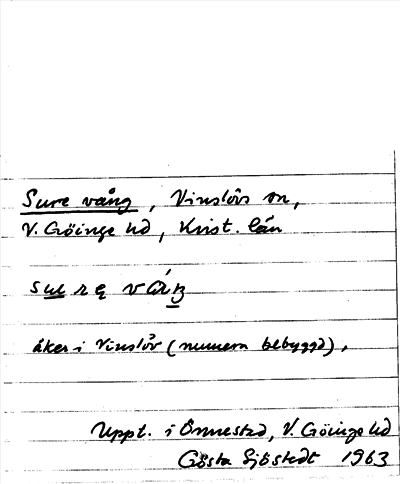 Sure vång, Vinslövs sn,
V. Göinge hd, Krist. län
åker i Vinslöv (numera bebyggd).
Uppt. i Önnestad, V. Göinge hd
Gösta Sjöstedt 1963